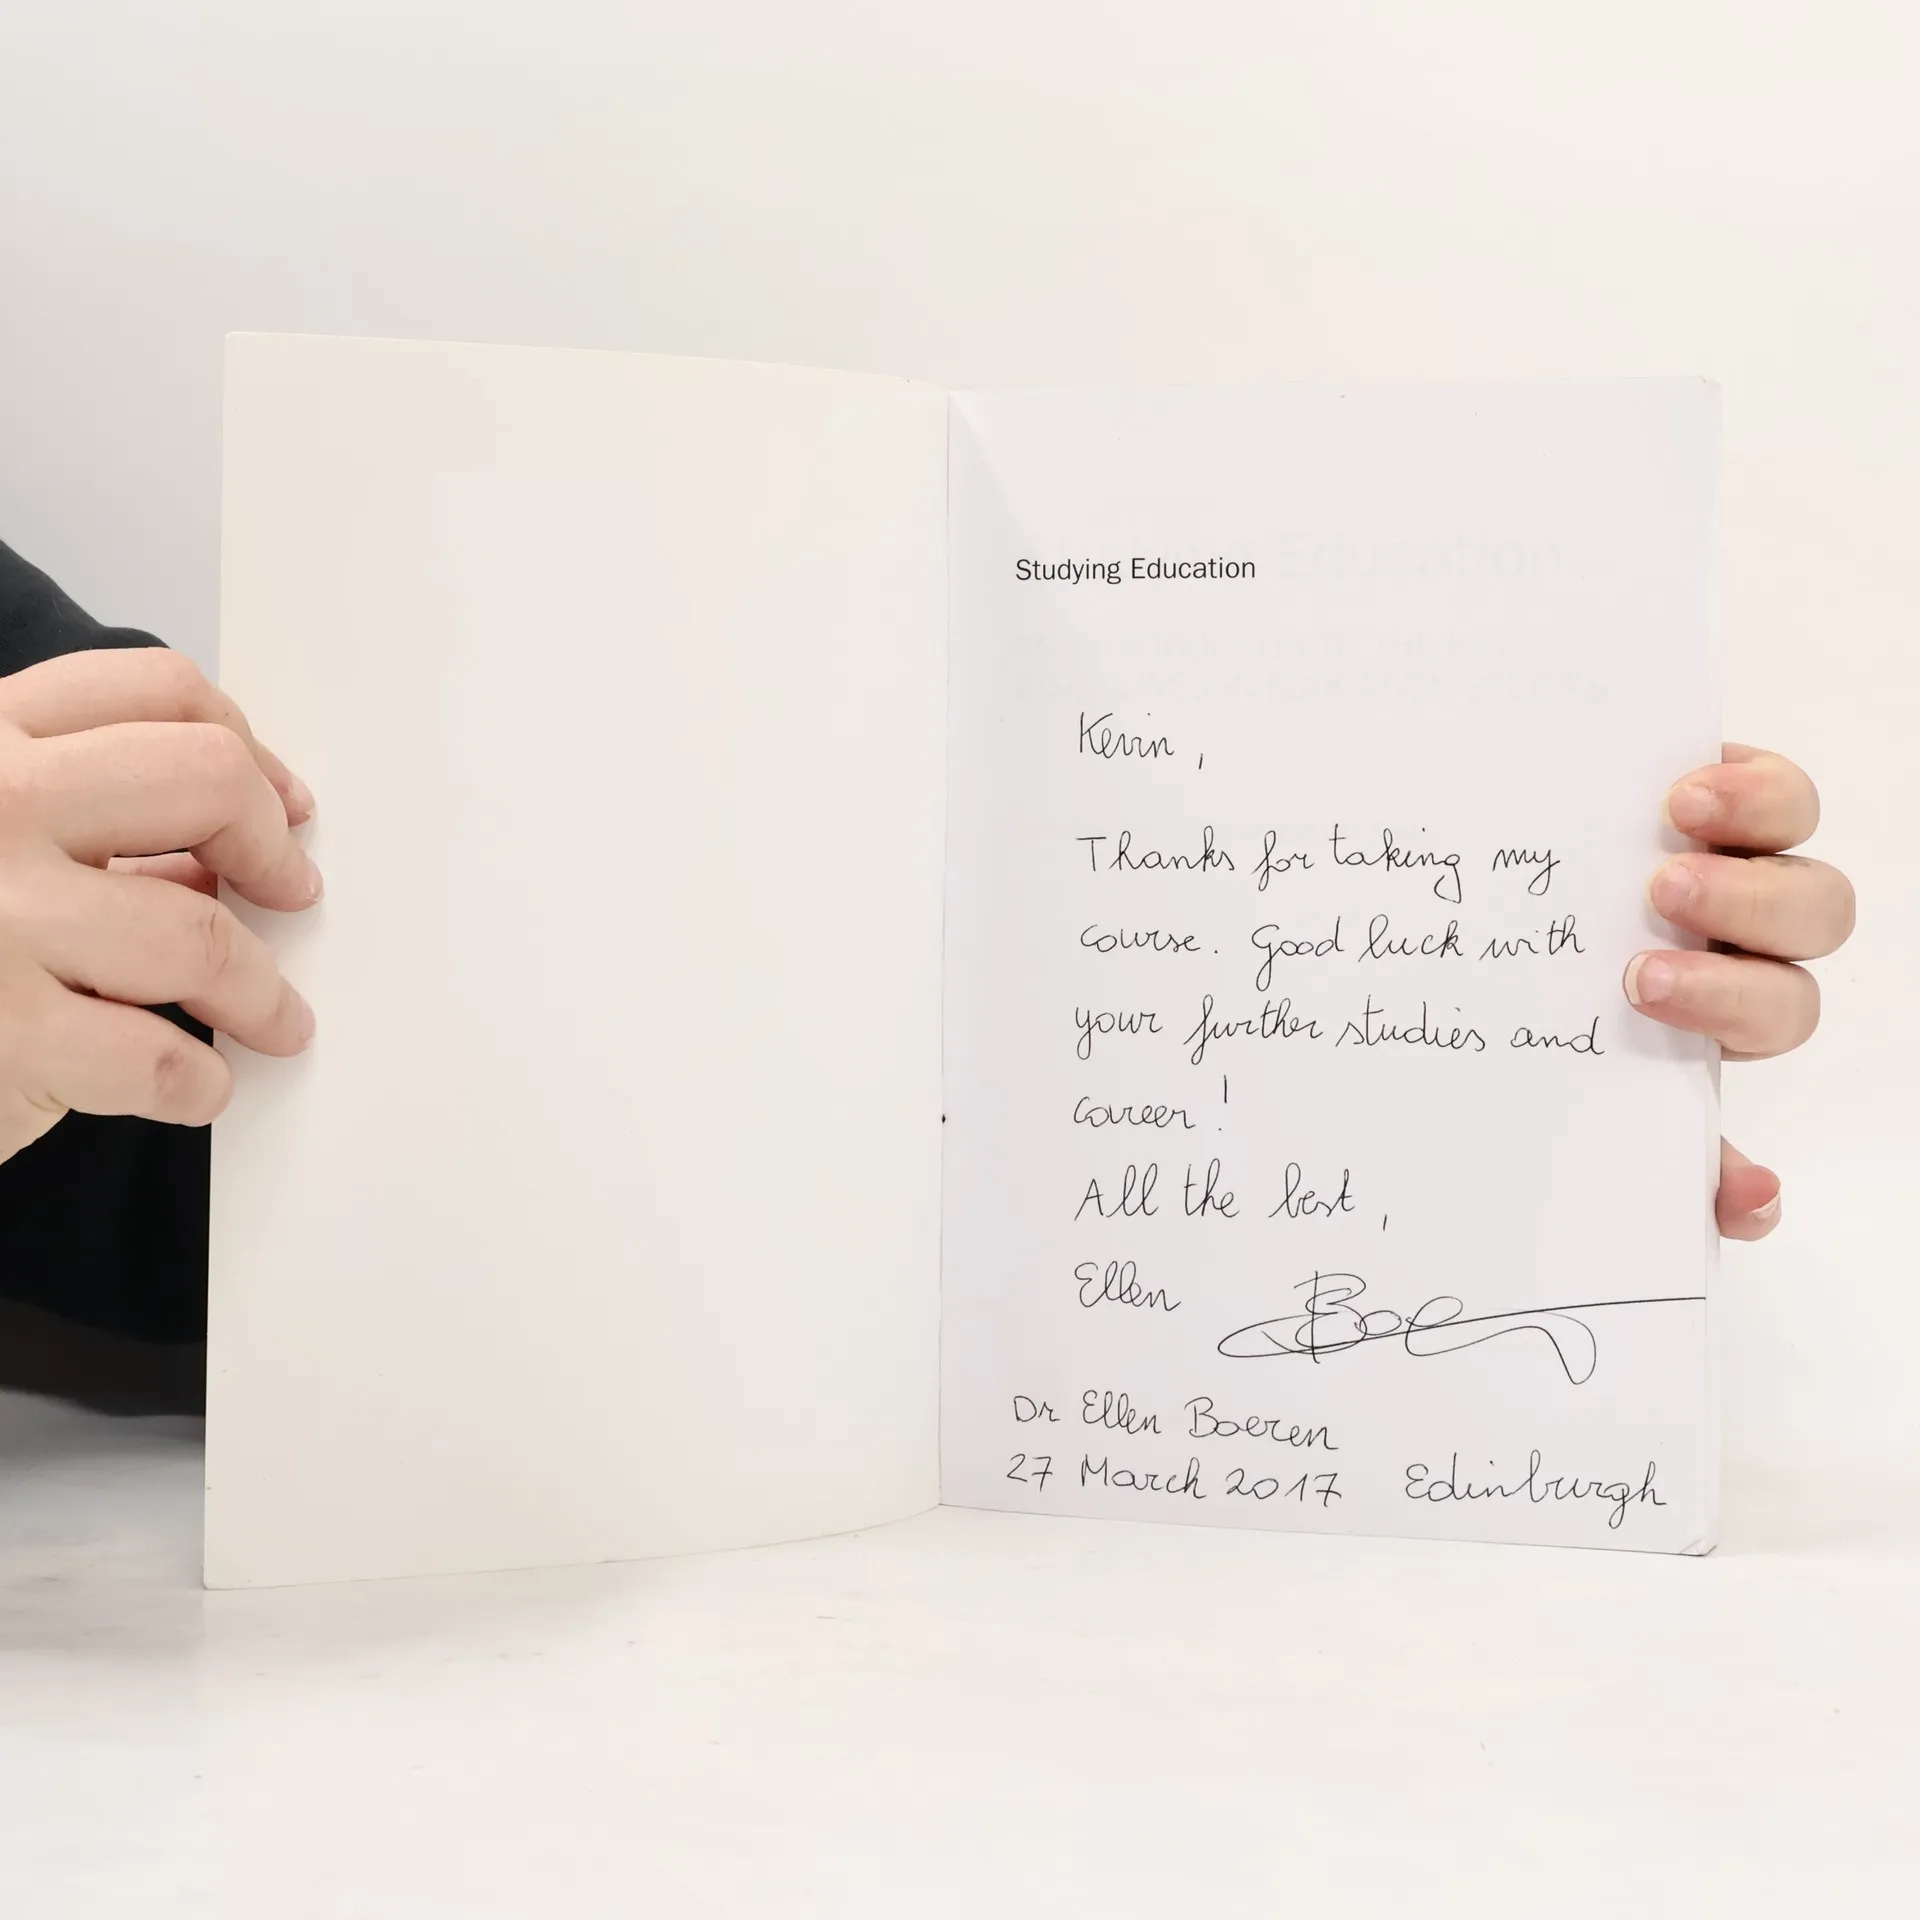 Studying Education
Kevin,
Thanks for taking my
course. Good luck with
your further studies and
career!
All the best,
Ellen Boe
Dr Ellen Boeren
27 March 2017 Edinburgh